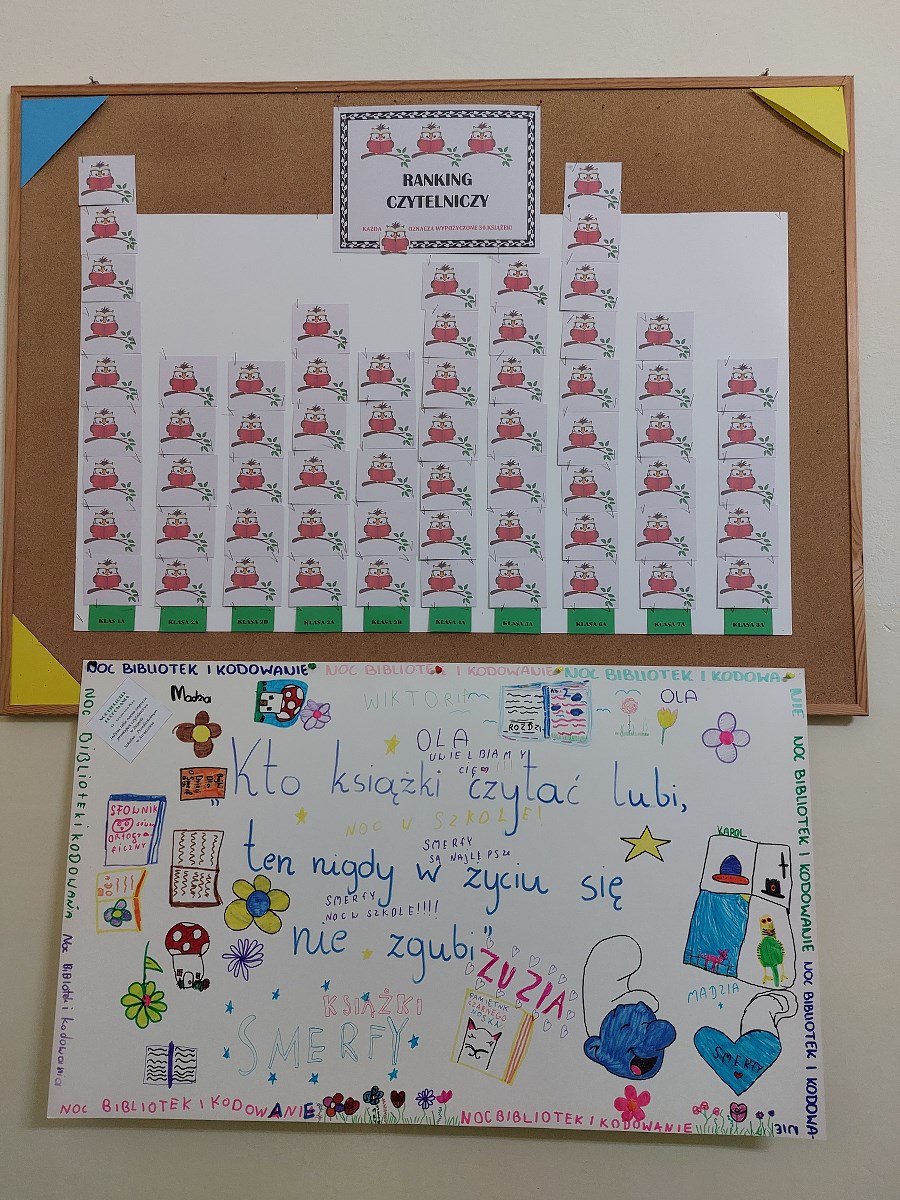 RANKING
CZYTELNICZY
KAŻDA OZNACZA WYPOŻYCZONE 30 KSIĄŻEK!
KLASA 1A KLASA 2A KLASA 2B KLASA 3A KLASA 3B KLASA 4A KLASA 5A KLASA 6A KLASA 7A KLASA 8A
NOC BIBLIOTEK I KODOWANIE NOC BIBLIOTEK I KODOWANIE NOC BIBLIOTEK I KODOWA
NIE NOC BIBLIOTEK I KODOWANIE NOC BIBLIOTEK I KODOWA-
NIE
NOC BIBLIOTEKI KODOWANIA Noc Biblioteki i kodowania
Madzia
WIKTORIA
ROZDZI
NR. 2
OLA
OLA
UWIELBIAMY
CIĘ
„Kto książki czytać lubi,
NOC W SZKOLE!
SŁOWNIK
ORtogra-
ficzny
SMERFY
SĄ NAJLEPSZE
KAROL
ten nigdy w życiu się
SMERFY
NOC W SZKOLE!!!!
nie zgubi"
ZUZIA
KSIĄŻKI
SMERFY
PAMIĘTNIK
CZARNEGO
NOSKA
MADZIA
SMERFY
NOC BIBLIOTEK I KODOWANIE NOC BIBLIOTEK I KODOWANIE